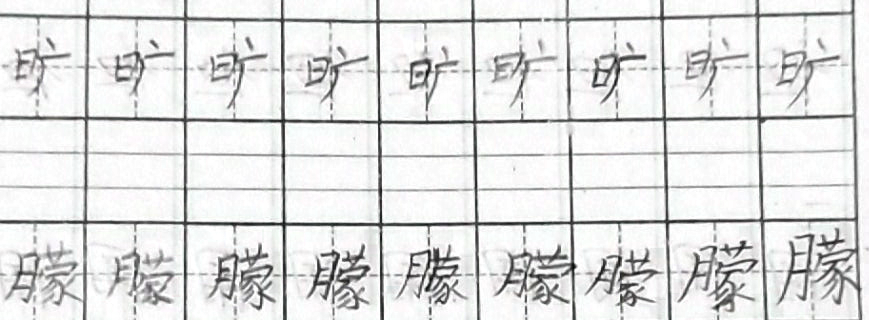 旷旷旷旷旷旷旷旷旷
朦朦朦朦朦朦朦朦朦